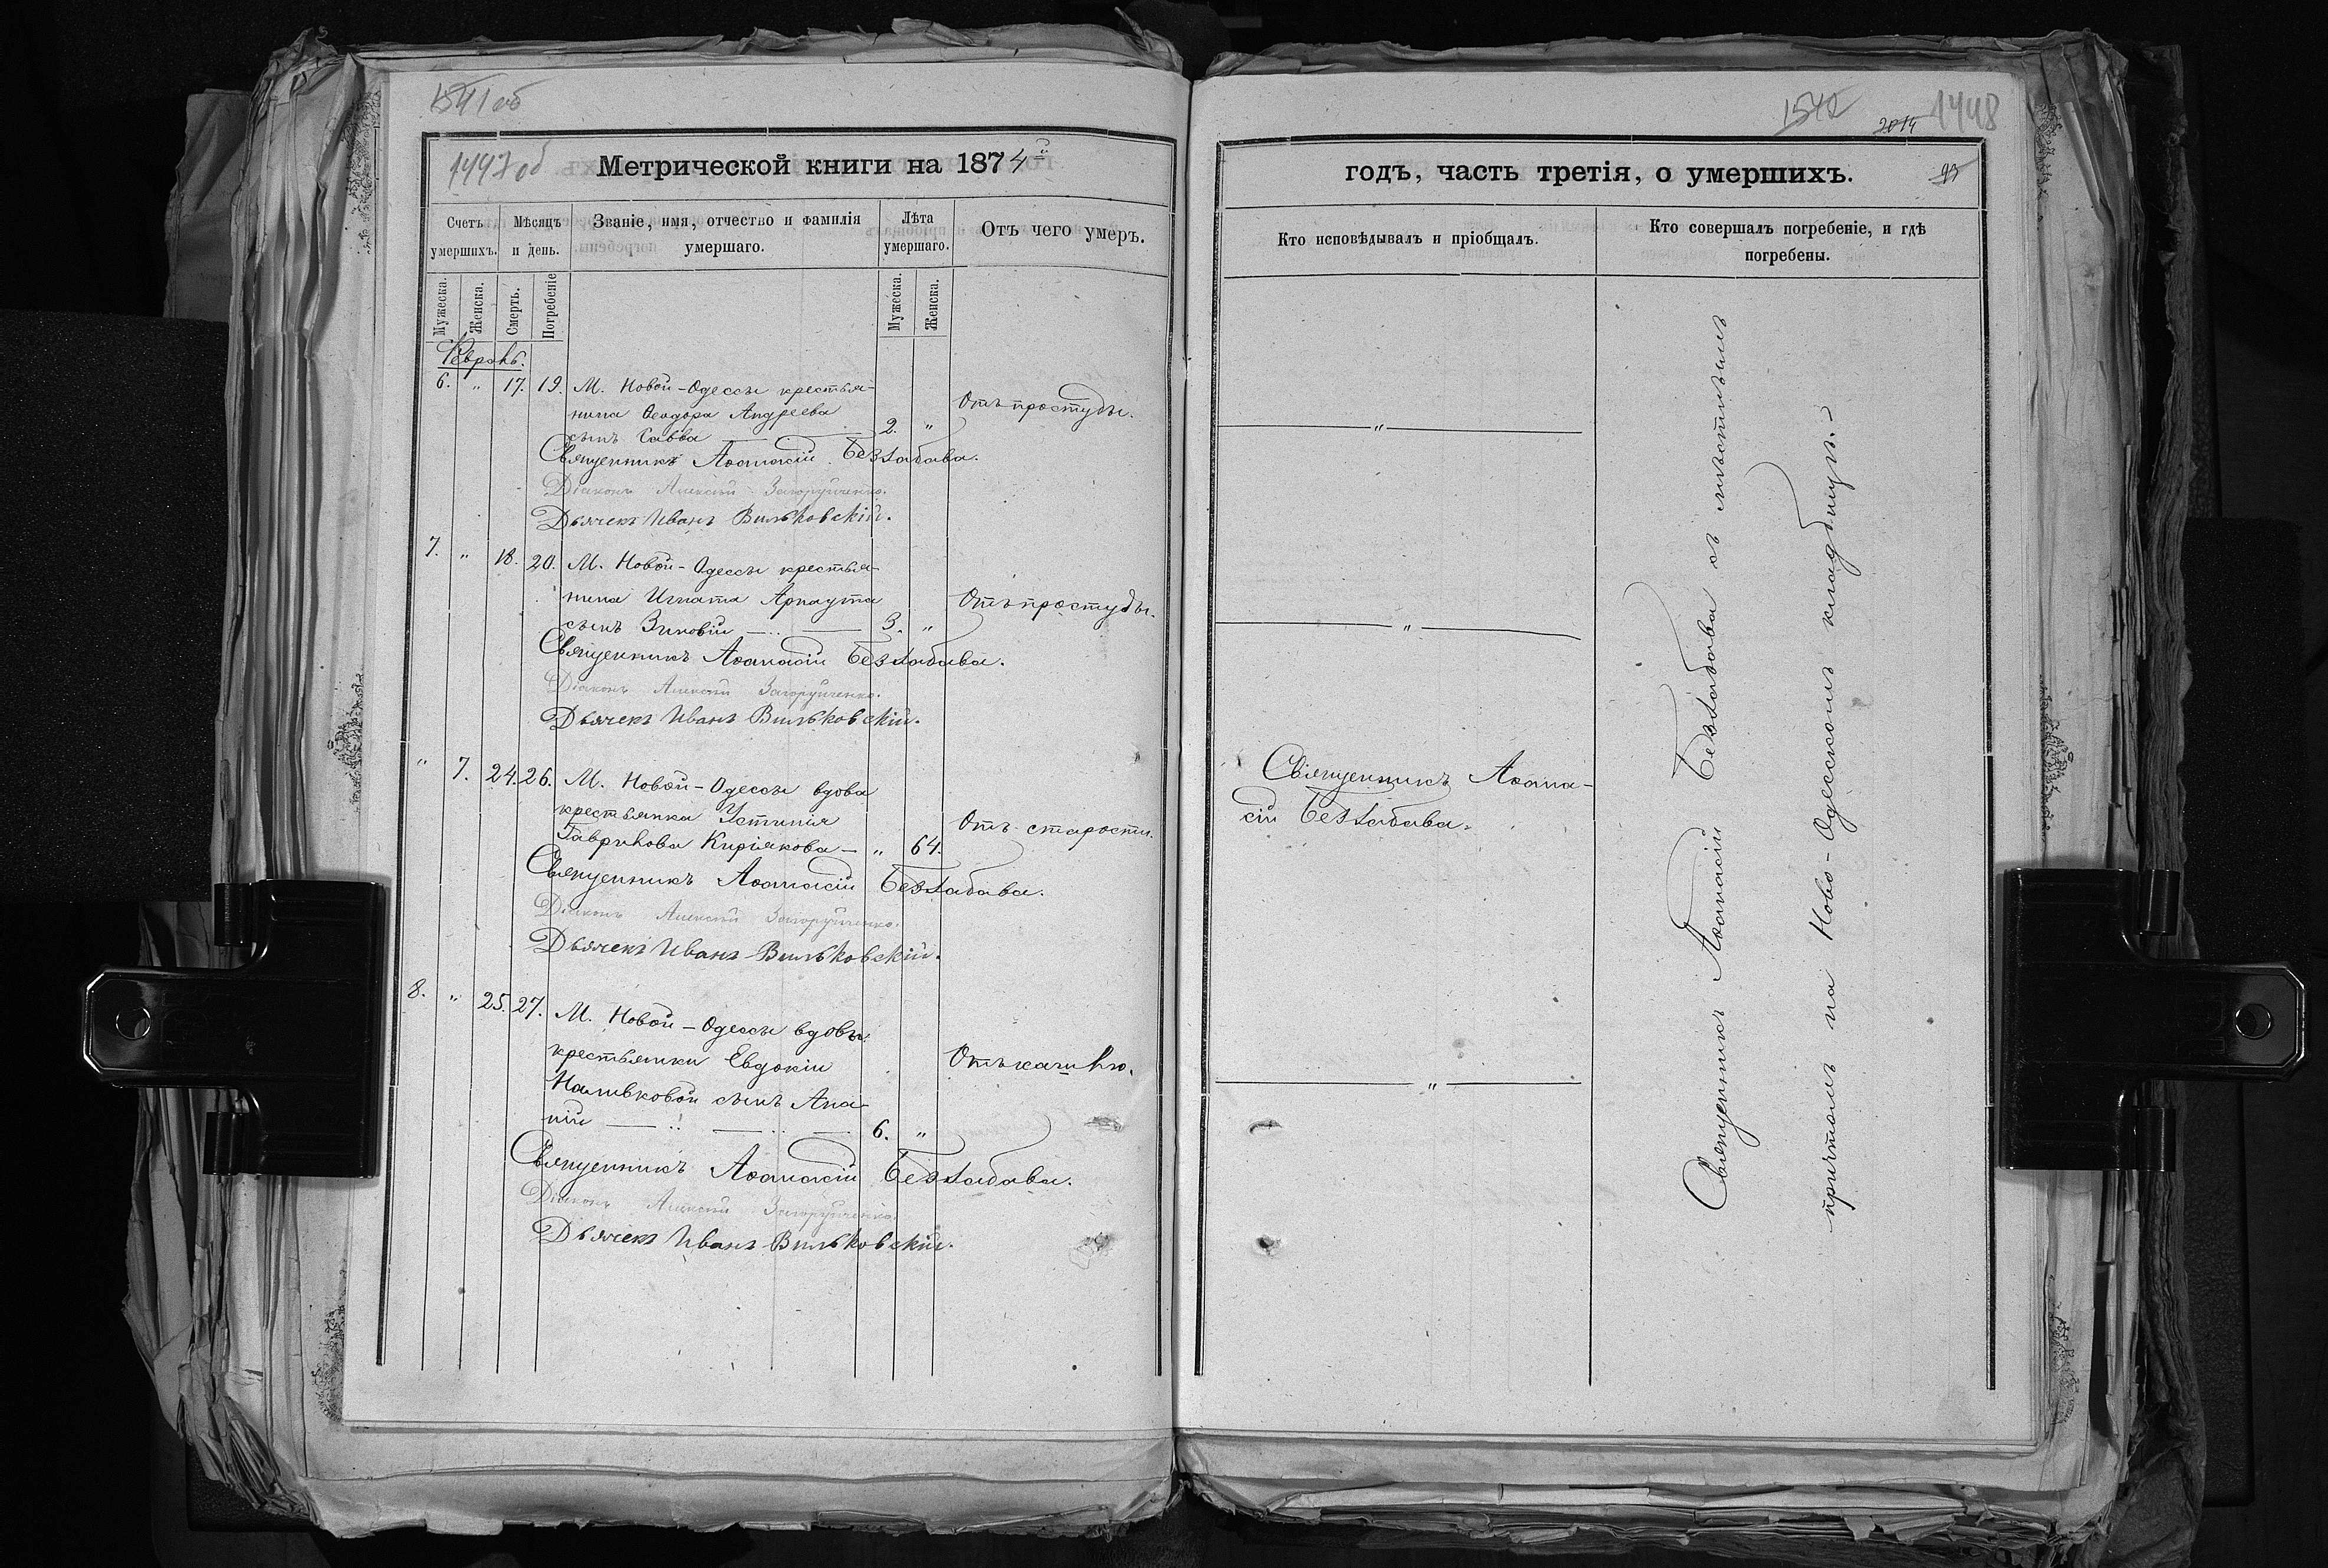 1541 об
1447 об
Метрической книги на 1874й
Счетъ умершихъ.
Мѣсяцъ и день.
Званіе, имя, отчество и фамилія умершаго.
Лѣта умершаго.
Отъ чего умеръ.
Мужеска.
Женска.
Смерть.
Погребеніе
Мужеска.
Женска.
Февраль.
6. " 17. 19. М. Новой-Одессы крестья-
нина Ѳеодора Андреева
сынъ Савва 2. "
Отъ простуды.
Священникъ Аѳанасій Беззабава.
Діаконъ Алексій Загоруйченко.
Дьячекъ Иванъ Вильковскій.
7. " 18. 20. М. Новой-Одессы крестья-
нина Игната Арнаута
сынъ Зиновій 3. "
Отъ простуды.
Священникъ Аѳанасій Беззабава.
Діаконъ Алексій Загоруйченко.
Дьячекъ Иванъ Вильковскій.
" 7. 24. 26. М. Новой-Одессы вдова
крестьянка Устинія
Гаврилова Киріякова " 64.
Отъ старости.
Священникъ Аѳанасій Беззабава.
Діаконъ Алексій Загоруйченко.
Дьячекъ Иванъ Вильковскій.
8. " 25. 27. М. Новой-Одессы вдовы
крестьянки Евдокіи
Наливковой сынъ Ана-
ній 6. "
Отъ кашлю.
Священникъ Аѳанасій Беззабава.
Діаконъ Алексій Загоруйченко.
Дьячекъ Иванъ Вильковскій.
1542
2014
1448
годъ, часть третія, о умершихъ.
Кто исповѣдывалъ и пріобщалъ.
Кто совершалъ погребеніе, и гдѣ
погребены.
"
"
Священникъ Аѳана-
сій Беззабава.
"
Священникъ Аѳанасій Беззабава съ мѣстнымъ
причтомъ на Ново-Одесскомъ кладбищѣ.